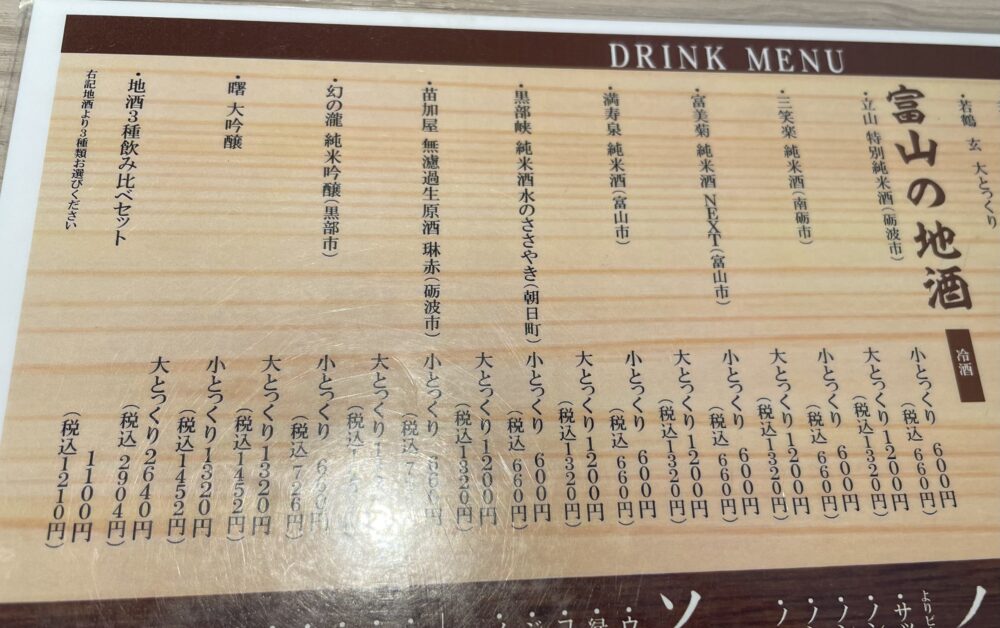 DRINK MENU
・若鶴 玄 大とっくり
富山の地酒
冷酒
・立山 特別純米酒(砺波市)
小とっくり 600円
(税込 660円)
大とっくり1200円
(税込1320円)
・三笑楽 純米酒(南砺市)
小とっくり 600円
(税込 660円)
大とっくり1200円
(税込1320円)
・富美菊 純米酒 NEXT(富山市)
小とっくり 600円
(税込 660円)
大とっくり1200円
(税込1320円)
・満寿泉 純米酒(富山市)
小とっくり 600円
(税込 660円)
大とっくり1200円
(税込1320円)
・黒部峡 純米酒水のささやき(朝日町)
小とっくり 600円
(税込 660円)
大とっくり1200円
(税込1320円)
・苗加屋 無濾過生原酒 琳赤(砺波市)
小とっくり 660円
(税込
大とっくり
(税込
・幻の瀧 純米吟醸(黒部市)
小とっくり 660円
(税込 726円)
大とっくり1320円
(税込1452円)
・曙 大吟醸
小とっくり1320円
(税込1452円)
大とっくり2640円
(税込 2904円)
・地酒3種飲み比べセット
右記地酒より3種類お選びください
1100円
(税込1210円)